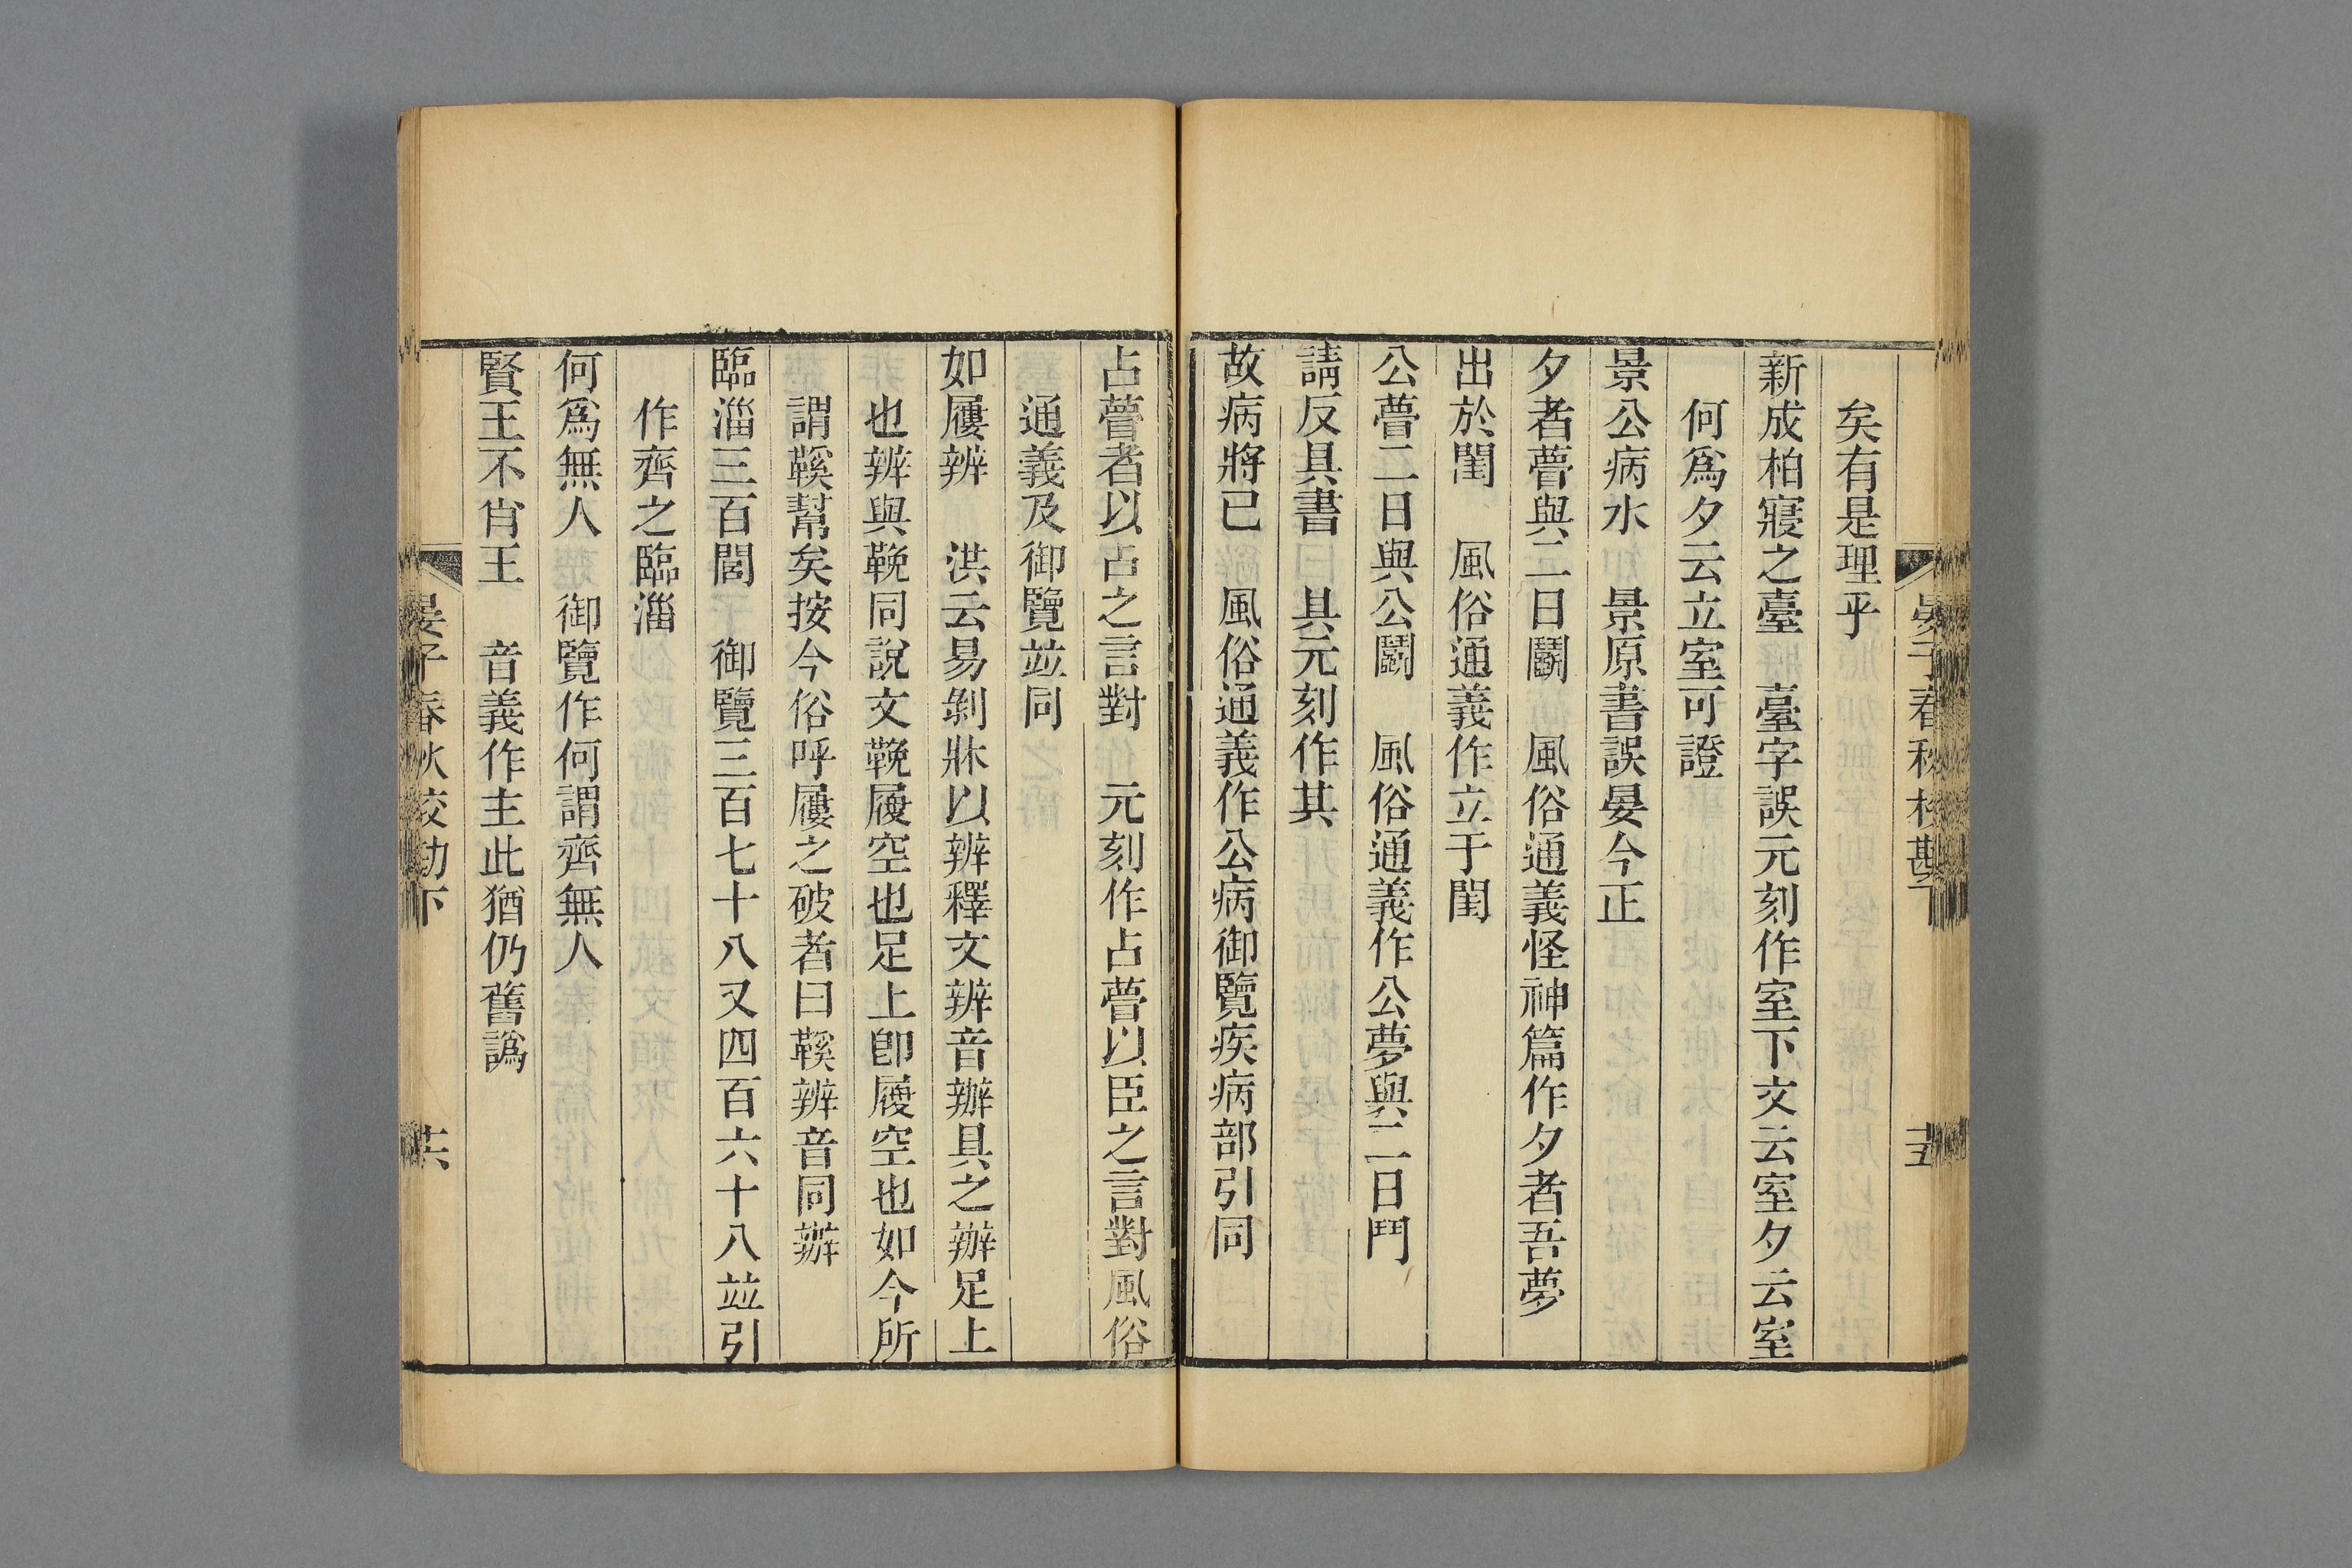 晏子春秋校勘下
矣有是理乎
新成柏寢之臺　臺字誤元刻作室下文云室夕云室
何爲夕云立室可證
景公病水　景原書誤晏今正
夕者瞢與二日鬭　風俗通義怪神篇作夕者吾夢
出於閨　風俗通義作立于閨
公瞢二日與公鬭　風俗通義作公夢與二日鬥
請反具書　具元刻作其
故病將已　風俗通義作公病御覽疾病部引同
占瞢者以占之言對　元刻作占瞢以臣之言對風俗
通義及御覽竝同
如屨辨　洪云易剝牀以辨釋文辨音辦具之辦足上
也辨與鞔同說文鞔履空也足上卽履空也如今所
謂鞵幫矣按今俗呼屨之破者曰鞵辨音同辦
臨淄三百閭　御覽三百七十八又四百六十八竝引
作齊之臨淄
何爲無人　御覽作何謂齊無人
賢王不肯王　音義作主此猶仍舊譌
晏子春秋校勘下